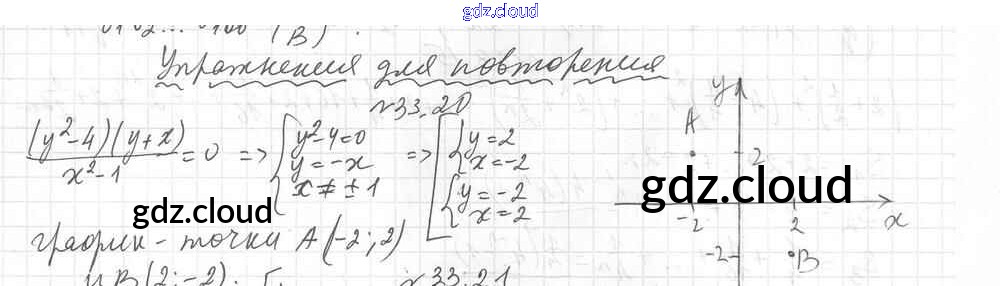 gdz.cloud
Упражнения для повторения
№33.20
(y²-4)(y+x)/(x²-1) = 0 => { y²-4=0 y=-x x≠±1 => [ { y=2 x=-2 { y=-2 x=2
gdz.cloud
график - точки A(-2; 2)
и B(2; -2).
№33.21
y
A
2
gdz.cloud
-2
2
x
-2
B